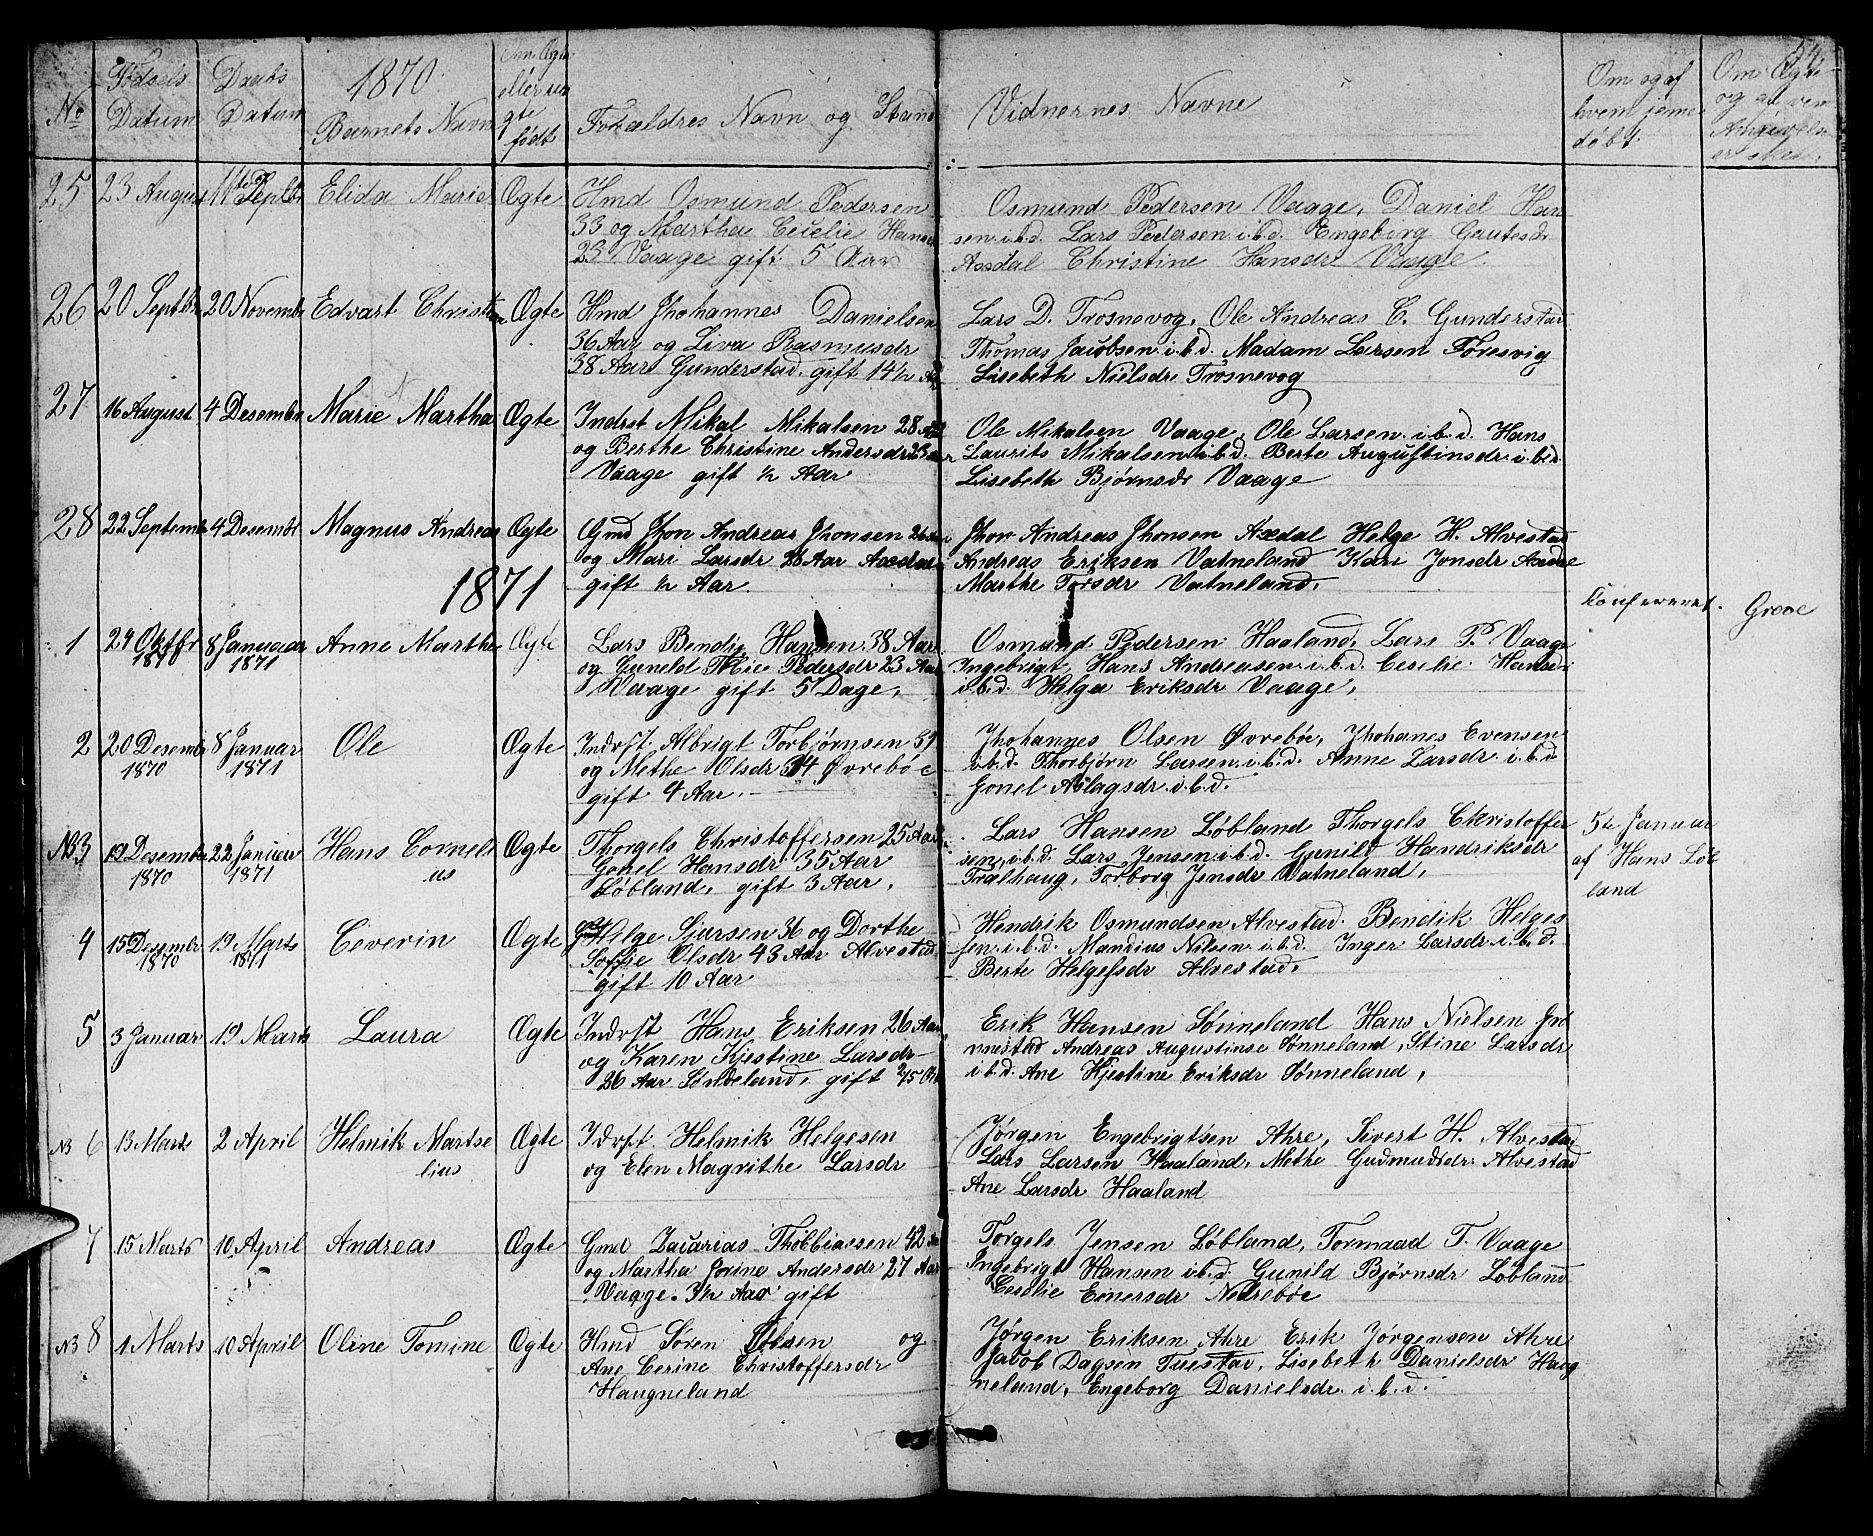 No
Fødsels Datum
Daabs Datum
1870
Barnets Navn
Om Ægte eller un gte født
Forældres Navn og Stand
Vidnernes Navne
Om og af hvem jeme døbt
Om Ægte
og af
25 23 August 11te Septbr Elida Marie Ægte
Hmd Osmund Pedersen
33 og Martha Cecelie Hans
23 Vaage gift 5 Aar
Osmund Pedersen Vaage, Daniel Han
sen i.b.d. Lars Pedersen i.b.d. Engeborg Gautesdr
Axdal Christine Hansdr Vaage.
26 20 Septbr 20 Novembr Edvart Christian Ægte
Hmd Jhohannes Danielsen
36 Aar og Liva Rasmusdr
38 Aar Gunderstad, gift 14½ Aar
Lars D. Trosnevog, Ole Andreas C. Gunderstad
Thomas Jacobsen i.b.d. Madam Larsen Føresvig
Lisebeth Nielsdr Trosnevog
27 16 August 4 Desembr Marie Martha Ægte
Indrst Mikal Mikalsen 28 Aar
og Berthe Christine Andersdr 23 Aar
Vaage gift ½ Aar
Ole Mikalsen Vaage, Ole Larsen i.b.d. Hans
Laurits Mikalsen i.b.d. Berte Augustinsdr i.b.d.
Lisebeth Bjørnsdr Vaage
28 22 Septemb 4 Desembr Magnus Andreas Ægte
Gmd Jhon Andreas Jhonsen 26 Aar
og Mari Larsdr 28 Aar Axdal
gift ½ Aar.
Jhon Andreas Jhonsen Axdal Helge H. Alvestad
Andreas Eriksen Vatneland Kari Jonsdr Axdal
Marthe Torsdr Vatneland.
1871
Konfereret. Greve
1 24 Oktbr 1870 8 Januaar 1871 Anne Marthe Ægte
Lars Bendix Hansen 38 Aar
og Guneld Pedersdr 23 Aar
Vaage gift 5 Dage,
Osmund Pedersen Haaland, Lars P. Vaage
Ingebrigt Hans Andreasen i.b.d. Ceselie Hansdr
i.b.d. Helga Eriksdr Vaage,
2 20 Desembr 1870 8 Januar 1871 Ole Ægte
Indrst Albrigt Torbjørnsen 39
og Methe Olsdr 34 Øvrebøe
gift 4 Aar.
Jhohannes Olsen Øvrebøe, Jhohanes Evensen
i.b.d. Thorbjørn Larsen i.b.d. Anne Larsdr i.b.d
Gonel Aslagsdr i.b.d.
NB 3 19 Desembr 1870 22 Januar 1871 Hans Corneli
us Ægte
Thorgels Christoffersen 25 Aar
Gonel Hansdr 35 Aar
Løbland, gift 3 Aar,
Lars Hansen Løbland Thorgels Christoffer
sen, i.b.d. Lars Jensen i.b.d. Gunild Handriksdr
Tralhaug, Torborg Jensdr Vatneland,
5te Januar
af Hans Løb
land
4 15 Desembr 1870 19 Marts 1871 Ceverin Ægte
Helge Sjursen 36 og Dorthe
Soffie Olsdr 43 Aar Alvestad
gift 10 Aar
Hendrik Osmundsen Alvestad. Bendik Helges
sen i.b.d. Mandius Nilsen i.b.d. Inger Larsdr i.b.d.
Berte Helgesdr Alvestad.
5 3 Januar 19 Marts Laura Ægte
Indrst Hans Eriksen 26 Aar
og Karen Kjestine Larsdr
26 Aar Sønneland, gift
Erik Hansen Sønneland Hans Nielsen Grø
vnestad Andreas Augustinse Sønneland, Stine Larsdr
i.b.d. Ane Kjestine Eriksdr Sønneland,
NB 6 13 Marts 2 April Helmik Martse
lius Ægte
Idrst. Helmik Helgesen
og Elen Magrithe Larsdr
Jørgen Engebrigtsen Ahre, Sivert H. Alvestad
Lars Larsen Haaland, Methe Gudmudsdr Alvestad
Ane Larsdr Haaland
7 15 Marts 10 April Andreas Ægte
Gmd Zacarias Thobbiassen 42 Aar
og Martha Jorine Andersdr 27 Aar
Vaage. 3½ Aar gift
Torgels Jensen Løbland, Tormaad T. Vaage
Ingebrigt Hansen i.b.d. Gunild Bjørnsdr Løbland
Ceselie Einersdr Nedrebøe
NB 8 1 Marts 10 April Oline Tomine Ægte
Hmd Søren Olsen og
Ane Cerine Christoffersdr
Haugneland
Jørgen Eriksen Ahre Erik Jørgensen Ahre
Jacob Dagsen Tuestad, Lisebeth Danielsdr Haug
neland, Engeborg Danielsdr i.b.d.